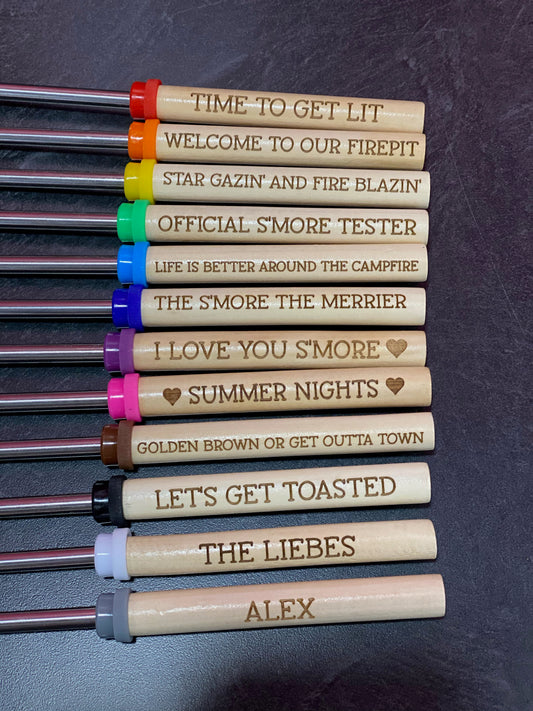 TIME TO GET LIT
WELCOME TO OUR FIREPIT
STAR GAZIN' AND FIRE BLAZIN'
OFFICIAL S'MORE TESTER
LIFE IS BETTER AROUND THE CAMPFIRE
THE S'MORE THE MERRIER
I LOVE YOU S'MORE ♥
♥ SUMMER NIGHTS ♥
GOLDEN BROWN OR GET OUTTA TOWN
LET'S GET TOASTED
THE LIEBES
ALEX